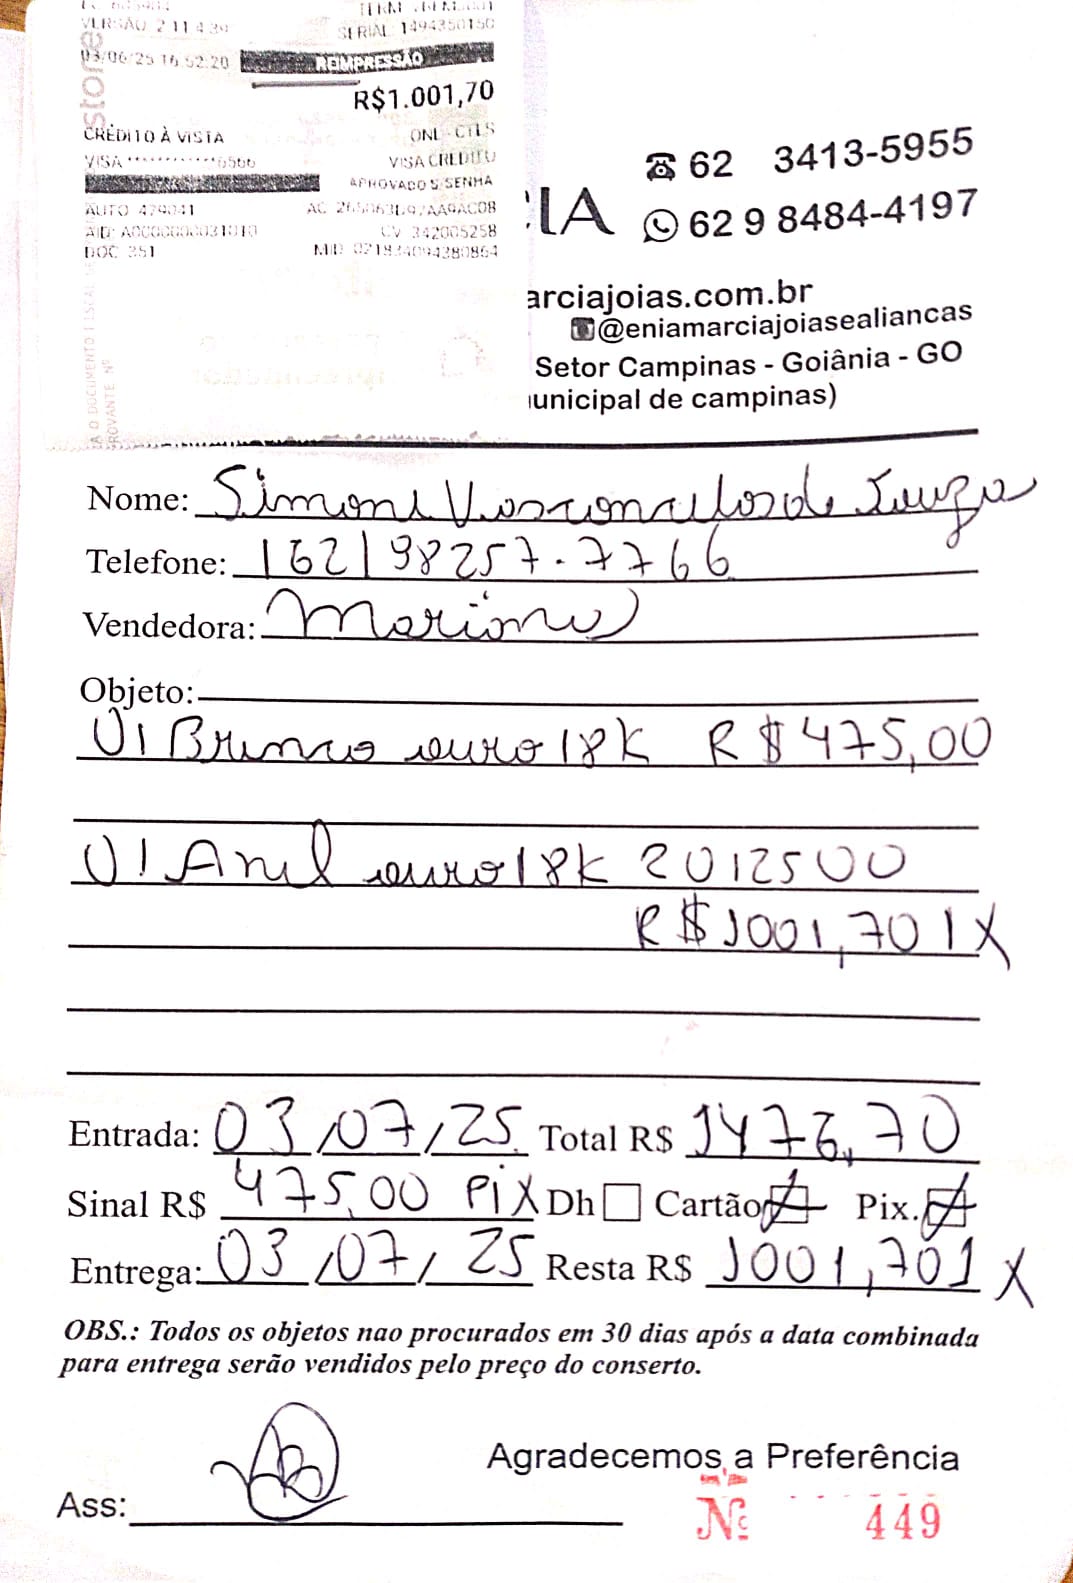 VERSÃO 2 11 4 39
SERIAL 1494350150
03/06/25 16:52:20 REIMPRESSÃO
R$1.001,70
stone
CRÉDITO À VISTA ONL - CTLS
VISA ************6566 VISA CREDITO
APROVADO S/SENHA
AUTO 479041
CV 342005258
DOC 351
IA
62 3413-5955
62 9 8484-4197
arciajoias.com.br
@eniamarciajoiasealiancas
Setor Campinas - Goiânia - GO
unicipal de campinas)
Nome: Simone Vasconcelos de Souza
Telefone: (62) 98257-7766
Vendedora:
Objeto:
01 Brinco ouro 18K R$475,00
01 Anel ouro 18K 2012500
R$1001,70 1X
Entrada: 03/07/25 Total R$ 1476,70
Sinal R$ 475,00 PiX Dh Cartão Pix.
Entrega: 03/07/25 Resta R$ 1001,70 1X
OBS.: Todos os objetos nao procurados em 30 dias após a data combinada
para entrega serão vendidos pelo preço do conserto.
Agradecemos a Preferência
Ass:
Nº 449